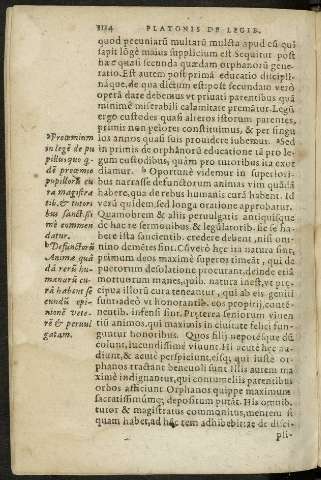 PLATONIS DE LEGIB.
quod pecuniarũ multarũ mulcta apud eũ qui
sapit longè maius supplicium est. Sequitur post
hæc quasi secunda quædam orphanorũ gene-
ratio. Est autem post primã educatio discipli-
náque, de qua dictum est: post secundam verò
operã dare debemus vt priuati parentibus quã
minimè miserabili calamitate premãtur. Legũ
ergo custodes quasi alteros istorum parentes,
primis non peiores constituimus, & per singu
los annos quasi suis prouidere iubemus. Sed
in primis de orphanorũ educatione tã pro le-
gum custodibus, quàm pro tutoribus ita exor
diamur. b Oportunè videmur in superiori-
bus narrasse defunctorum animas vim quãdã
habere, qua de rebus humanis curã habent. Id
verũ quidem, sed longa oratione approbatur.
Quamobrem & aliis peruulgatis antiquisque
de hac re sermonibus, & legúlatorib. sic se ha-
bere ista sancientib. credere debent, nisi om-
nino demẽtes sint. Cùm verò hæc ita natura sint,
primum deos maximè superos timeãt, qui de
puerorum desolatione procurant, deinde etiã
mortuorum manes, quib. natura inest, vt præ-
cipua illorũ cura teneantur, qui ab eis geniti
sunt: adeò vt honorantib. eos propitii, contẽ-
nentib. infensi sint. Præterea seniorum viuen
tiũ animos, qui maximis in ciuitate felici fun-
guntur honoribus. Quos filij nepotésque dũ
colunt, iucundissimè viuunt. Hi acutè hæc au
diunt, & acutè perspiciunt, eisq; qui iustè or-
phanos tractant beneuoli sunt. Illis autem ma
ximè indignantur, qui contumeliis parentibus
orbos afficiunt. Orphanos quippe maximum
sacratissimúmq; depositum putãt. His omnib.
tutor & magistratus commonitus, mentem si
quam habet, ad hæc tem adhibebit: ac de disci-
pli-
a Proœmium
in legẽ de pu
pillis: quo q-
dã proœmio
pupillorũ cu
ra magistra
tib. & tutori
bus sanctissi
mè commen
datur.
b Defunctorũ
Animæ quã
dã rerũ hu-
manarũ cu-
rã habent se
cundũ opi-
nionẽ vete-
rẽ & peruul
gatam.